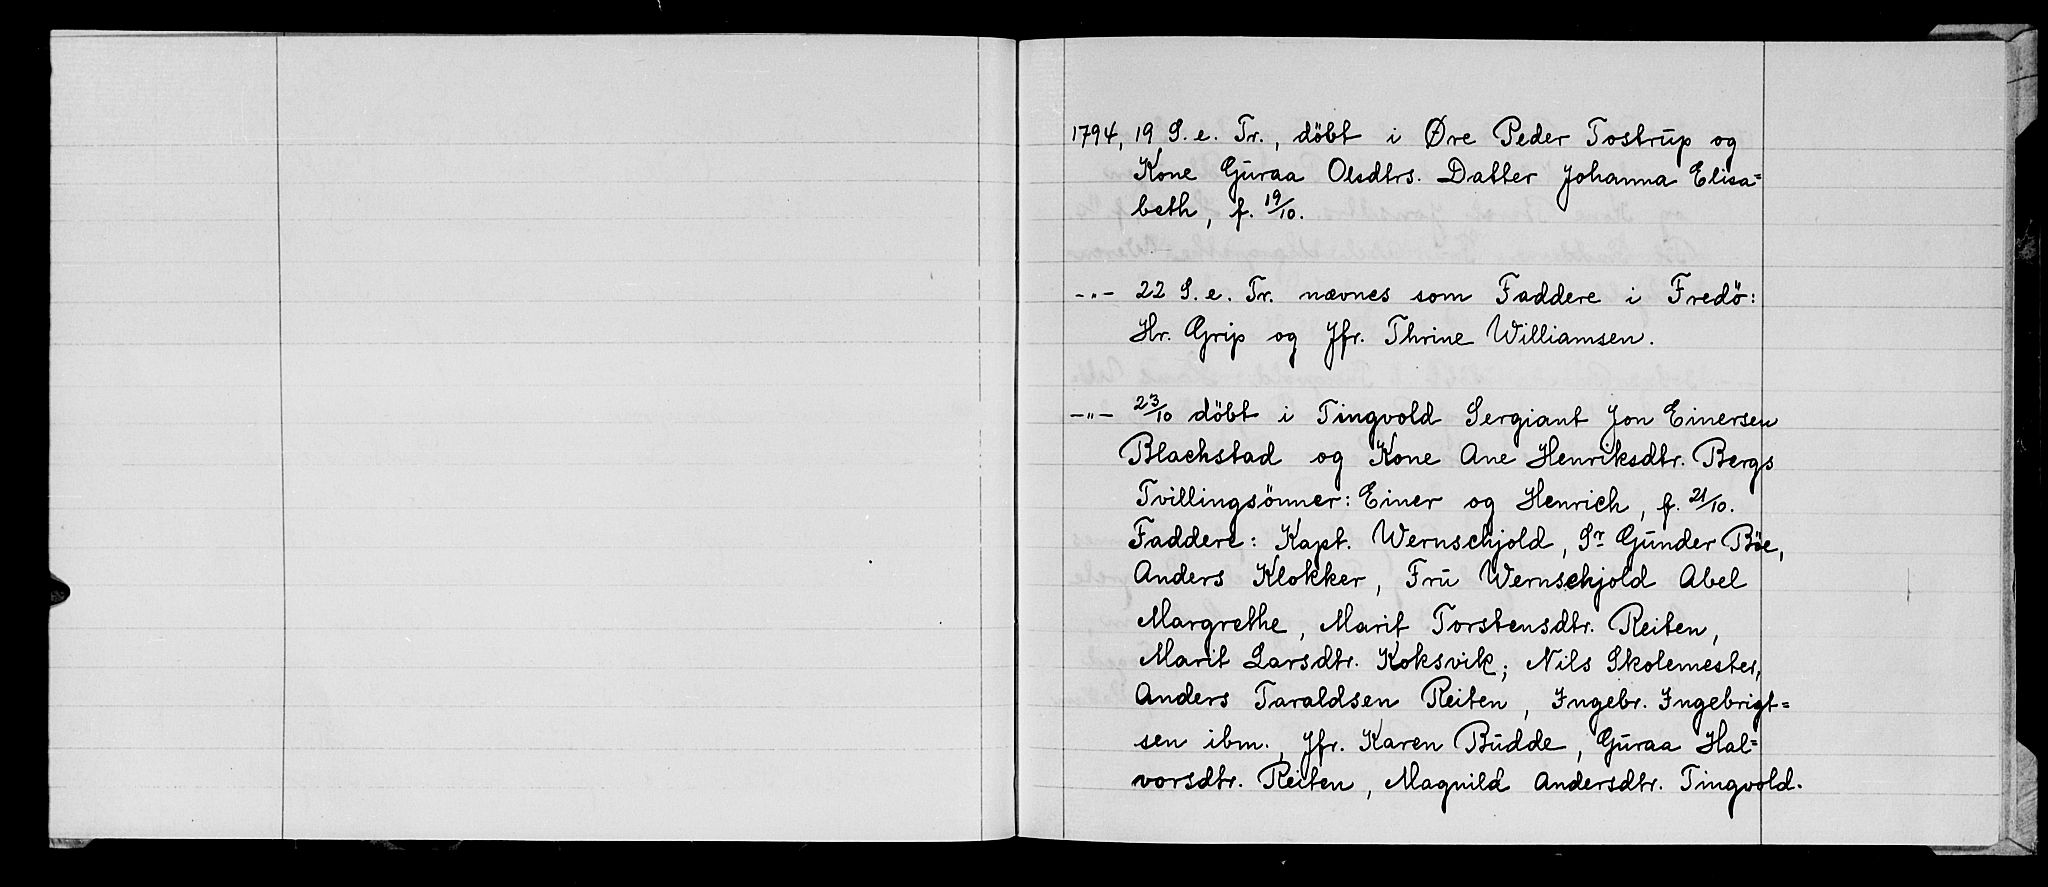 1794, 19 S. e. Tr., döbt i Øre Peder Tostrup og
Kone Guraa Olsdtrs. Datter Johanna Elisa=
beth, f. 19/10.
-„- 22 S. e. Tr. nævnes som Faddere i Fredö:
Hr. Grip og Jfr. Thrine Williamsen.
-„- 23/10 döbt i Tingvold Sergiant Jon Einersen
Blachstad og Kone Ane Henriksdtr. Bergs
Tvillingsönner: Einer og Henrich, f. 21/10.
Faddere: Kapt. Wernschjold, Sr. Gunder Böe,
Anders Klokker, Fru Wernschjold Abel
Margrethe, Marit Torstensdtr. Reiten,
Marit Larsdtr. Koksvik; Nils Skolemester,
Anders Taraldsen Reiten, Ingebr. Ingebrigt=
sen ibm., Jfr. Karen Budde, Guraa Hal=
vorsdtr. Reiten, Magnild Andersdtr. Tingvold.